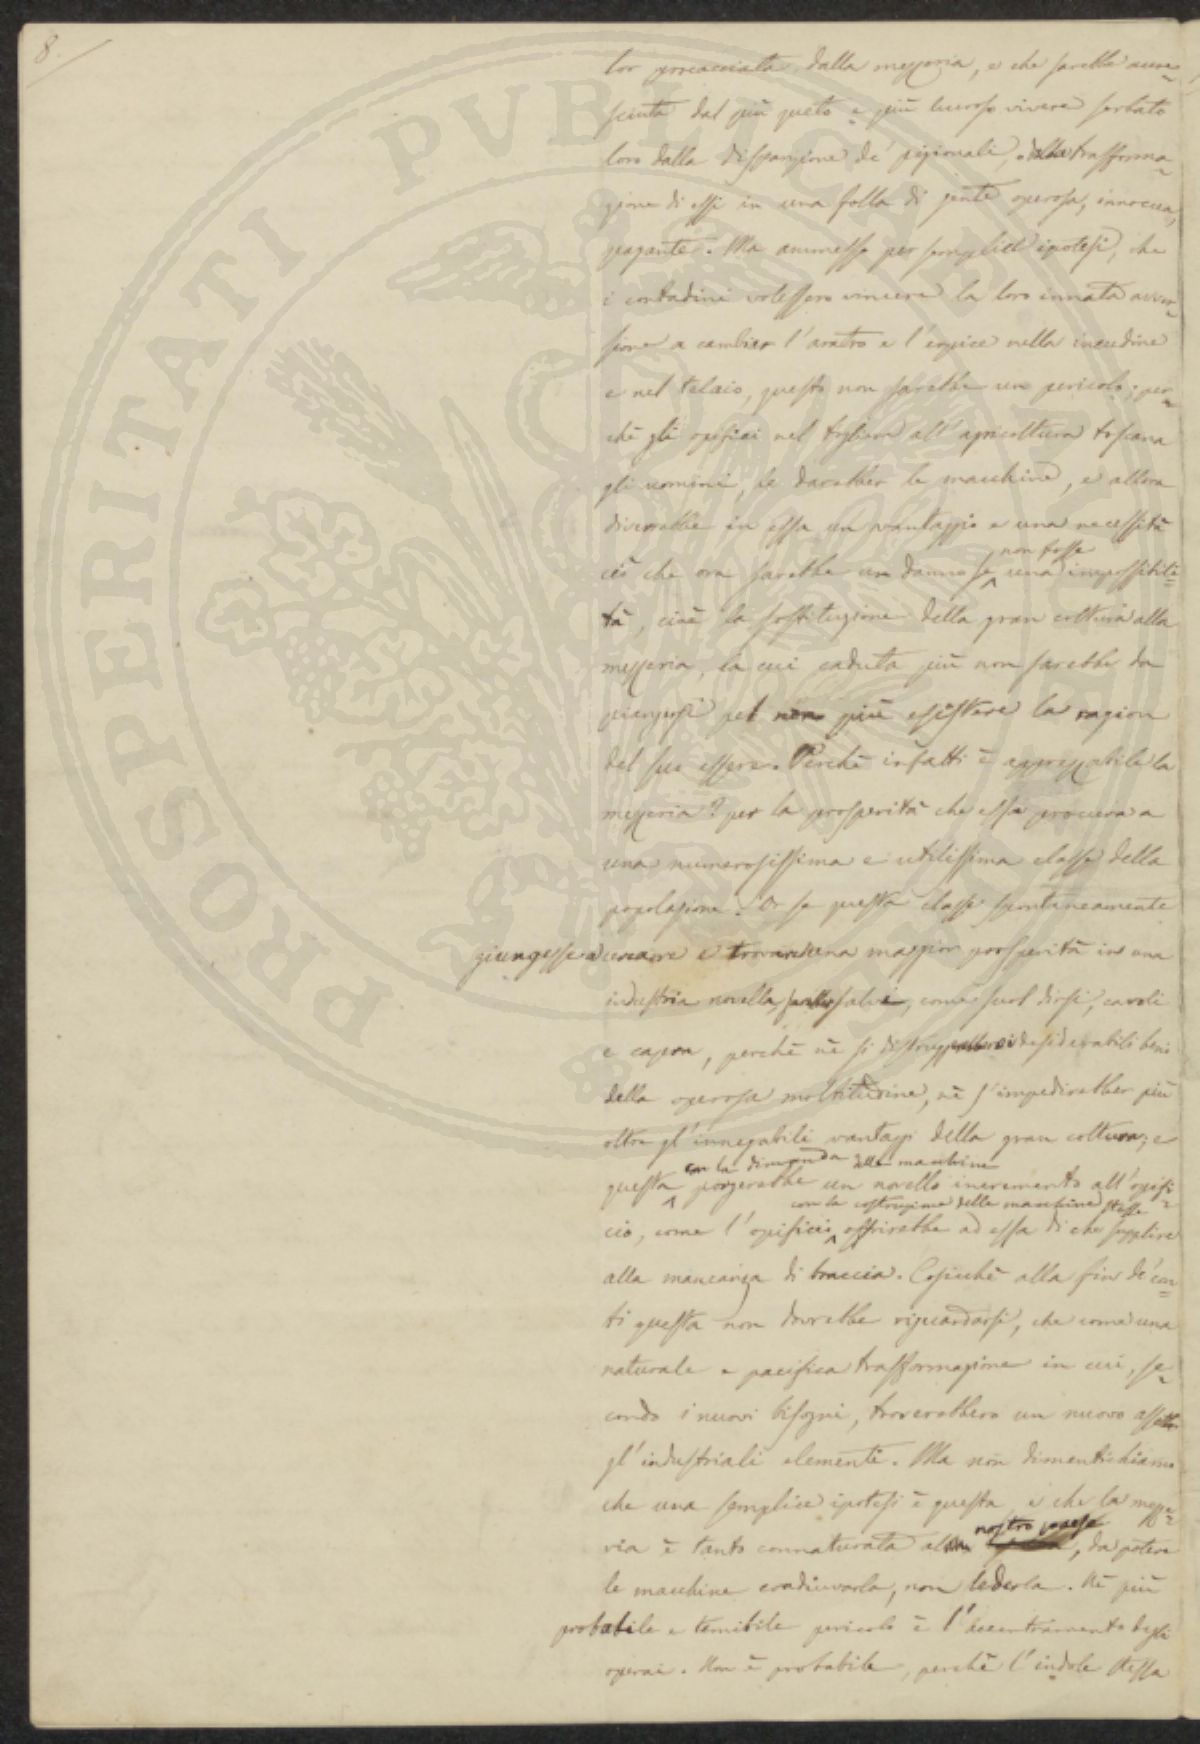 8.
lor procacciata dalla mezzeria, e che sarebbe accre=
sciuta dal più quieto e più lucroso vivere serbato
loro dalla disparizione de' pigionali, e dalla trasforma=
zione di essi in una folla di gente operosa, innocua,
pagante. Ma ammesso per semplice ipotesi, che
i contadini volessero vincere la loro innata avver=
sione a cambiar l'aratro e l'erpice nella incudine
e nel telaio, questo non sarebbe un pericolo; per=
chè gli opifici nel togliere all'agricoltura toscana
gli uomini, le darebber le macchine, e allora
diverrebbe in essa un vantaggio e una necessità
non fosse
ciò che ora sarebbe un danno se una impossibili=
tà, cioè la sostituzione della gran coltura alla
mezzeria, la cui caduta più non sarebbe da
piangersi pel non più esistere la ragion
del suo essere. Perchè infatti è apprezzabile la
mezzeria? per la prosperità che essa procura a
una numerosissima e utilissima classe della
popolazione. Or se questa classe spontaneamente
giungesse a cercare e trovare una maggior prosperità in una
industria novella, salvi, come suol dirsi, cavoli
e capra, perchè nè si desiderabili beni
della operosa moltitudine, nè s'impedirebber più
oltre gl'innegabili vantaggi della gran coltura; e
con la dimanda delle macchine
questa porgerebbe un novello incremento all'opifi=
con la costruzione delle macchine stesse
cio, come l'opificio offrirebbe ad essa di che supplire
alla mancanza di braccia. Cosicchè alla fin de' con=
ti questa non dovrebbe riguardarsi, che come una
naturale e pacifica trasformazione in cui, se=
condo i nuovi bisogni, troverebbero un nuovo assetto
gl'industriali elementi. Ma non dimentichiamo
che una semplice ipotesi è questa, e che la mezze=
nostro paese
ria è tanto connaturata al, da potere
le macchine coadiuvarla, non lederla. Nè più
probabile e temibile pericolo è l'accentramento degli
operai. Non è probabile, perchè l'indole stessa
PROSPERITATI PUBLICAE AUGENDAE